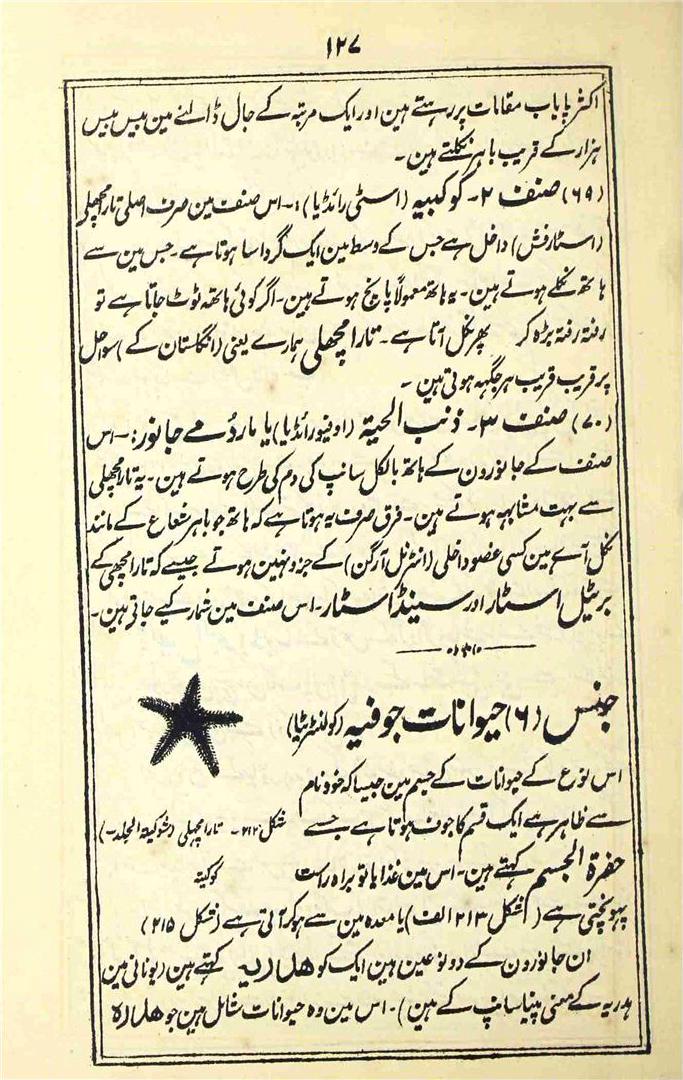 ۱۲۷
اکثر پایاب مقامات پر رہتے ہین اور ایک مرتبہ کے جال ڈالنے مین بیس بیس
ہزار کے قریب باہر نکلتے ہین۔
(۶۹) صنف ۲۔ کوکبیہ (اسٹی رائڈیا):۔ اس صنف مین صرف اصلی تارا مچھلی
(اسٹارفش) داخل ہے جس کے وسط مین ایک گردا سا ہوتا ہے۔ جس مین سے
ہاتھ نکلے ہوتے ہین۔ یہ ہاتھ معمولاً پانچ ہوتے ہین۔ اگر کوئی ہاتھ ٹوٹ جاتا ہے تو
رفتہ رفتہ بڑہ کر پھر نکل آتا ہے۔ تارا مچھلی ہمارے یعنی (انگلستان کے) سواحل
پر قریب قریب ہر جگہہ ہوتی ہین۔
(۷۰) صنف ۳۔ ذنب الحیۃ (اوفیورائڈیا) یا مار دُمے جانور:۔ اس
صنف کے جانورون کے ہاتھ بالکل سانپ کی دم کی طرح ہوتے ہین۔ یہ تارا مچھلی
سے بہت مشابہہ ہوتے ہین۔ فرق صرف یہ ہوتا ہے کہ ہاتھ جو باہر شعاع کے مانند
نکل آے ہین کسی عضو داخلی (انٹرنل آرگن) کے جزو نہین ہوتے جیسے کہ تارا مچھی کے
برٹیل اسٹار اور سینڈ اسٹار۔ اس صنف مین شمار کیے جاتی ہین۔
جنس (۶) حیوانات جوفیہ (کولنٹریٹا)
اس نوع کے حیوانات کے جسم مین جیسا کہ خود نام
سے ظاہر ہے ایک قسم کا جوف ہوتا ہے جسے
شکل ۲۱۲۔ تارا مچھلی (شوکیۃ الجلد۔)
حفرۃ الجسم کہتے ہین۔ اس مین غذا یا تو براہ راست
کوکبیۃ
پہونچتی ہے (شکل ۲۱۳ الف) یا معدہ مین سے ہو کر آتی ہے (شکل ۲۱۵)
ان جانورون کے دو نوعین ہین ایک کو ھدریہ کہتے ہین (یونانی مین
ہدریہ کے معنی پنیا سانپ کے ہین)۔ اس مین وہ حیوانات شامل ہین جو ھدرہ